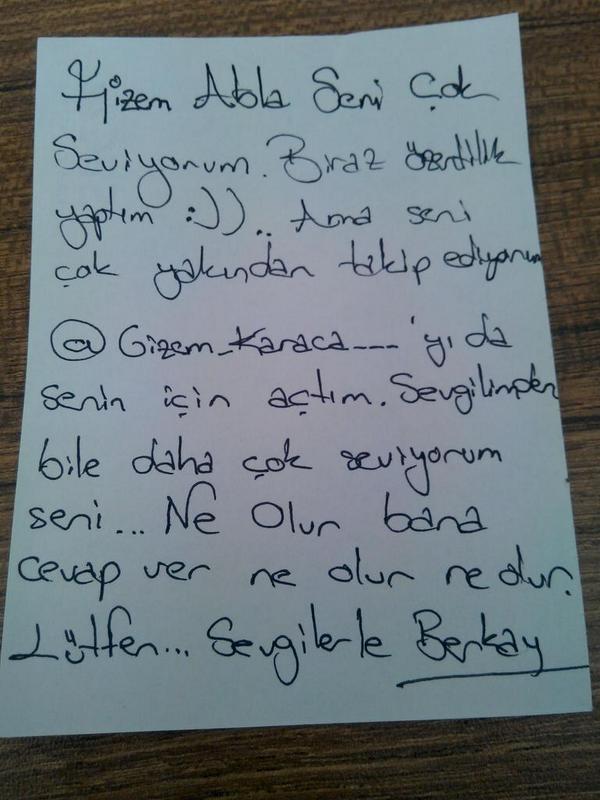 Gizem Abla Seni Çok
Seviyorum. Biraz özentilik
yaptım :)).. Ama seni
çok yakından takip ediyorum
@Gizem_Karaca___'yı da
senin için açtım. Sevgilimden
bile daha çok seviyorum
seni... Ne Olur bana
cevap ver ne olur ne olur.
Lütfen... Sevgilerle Berkay